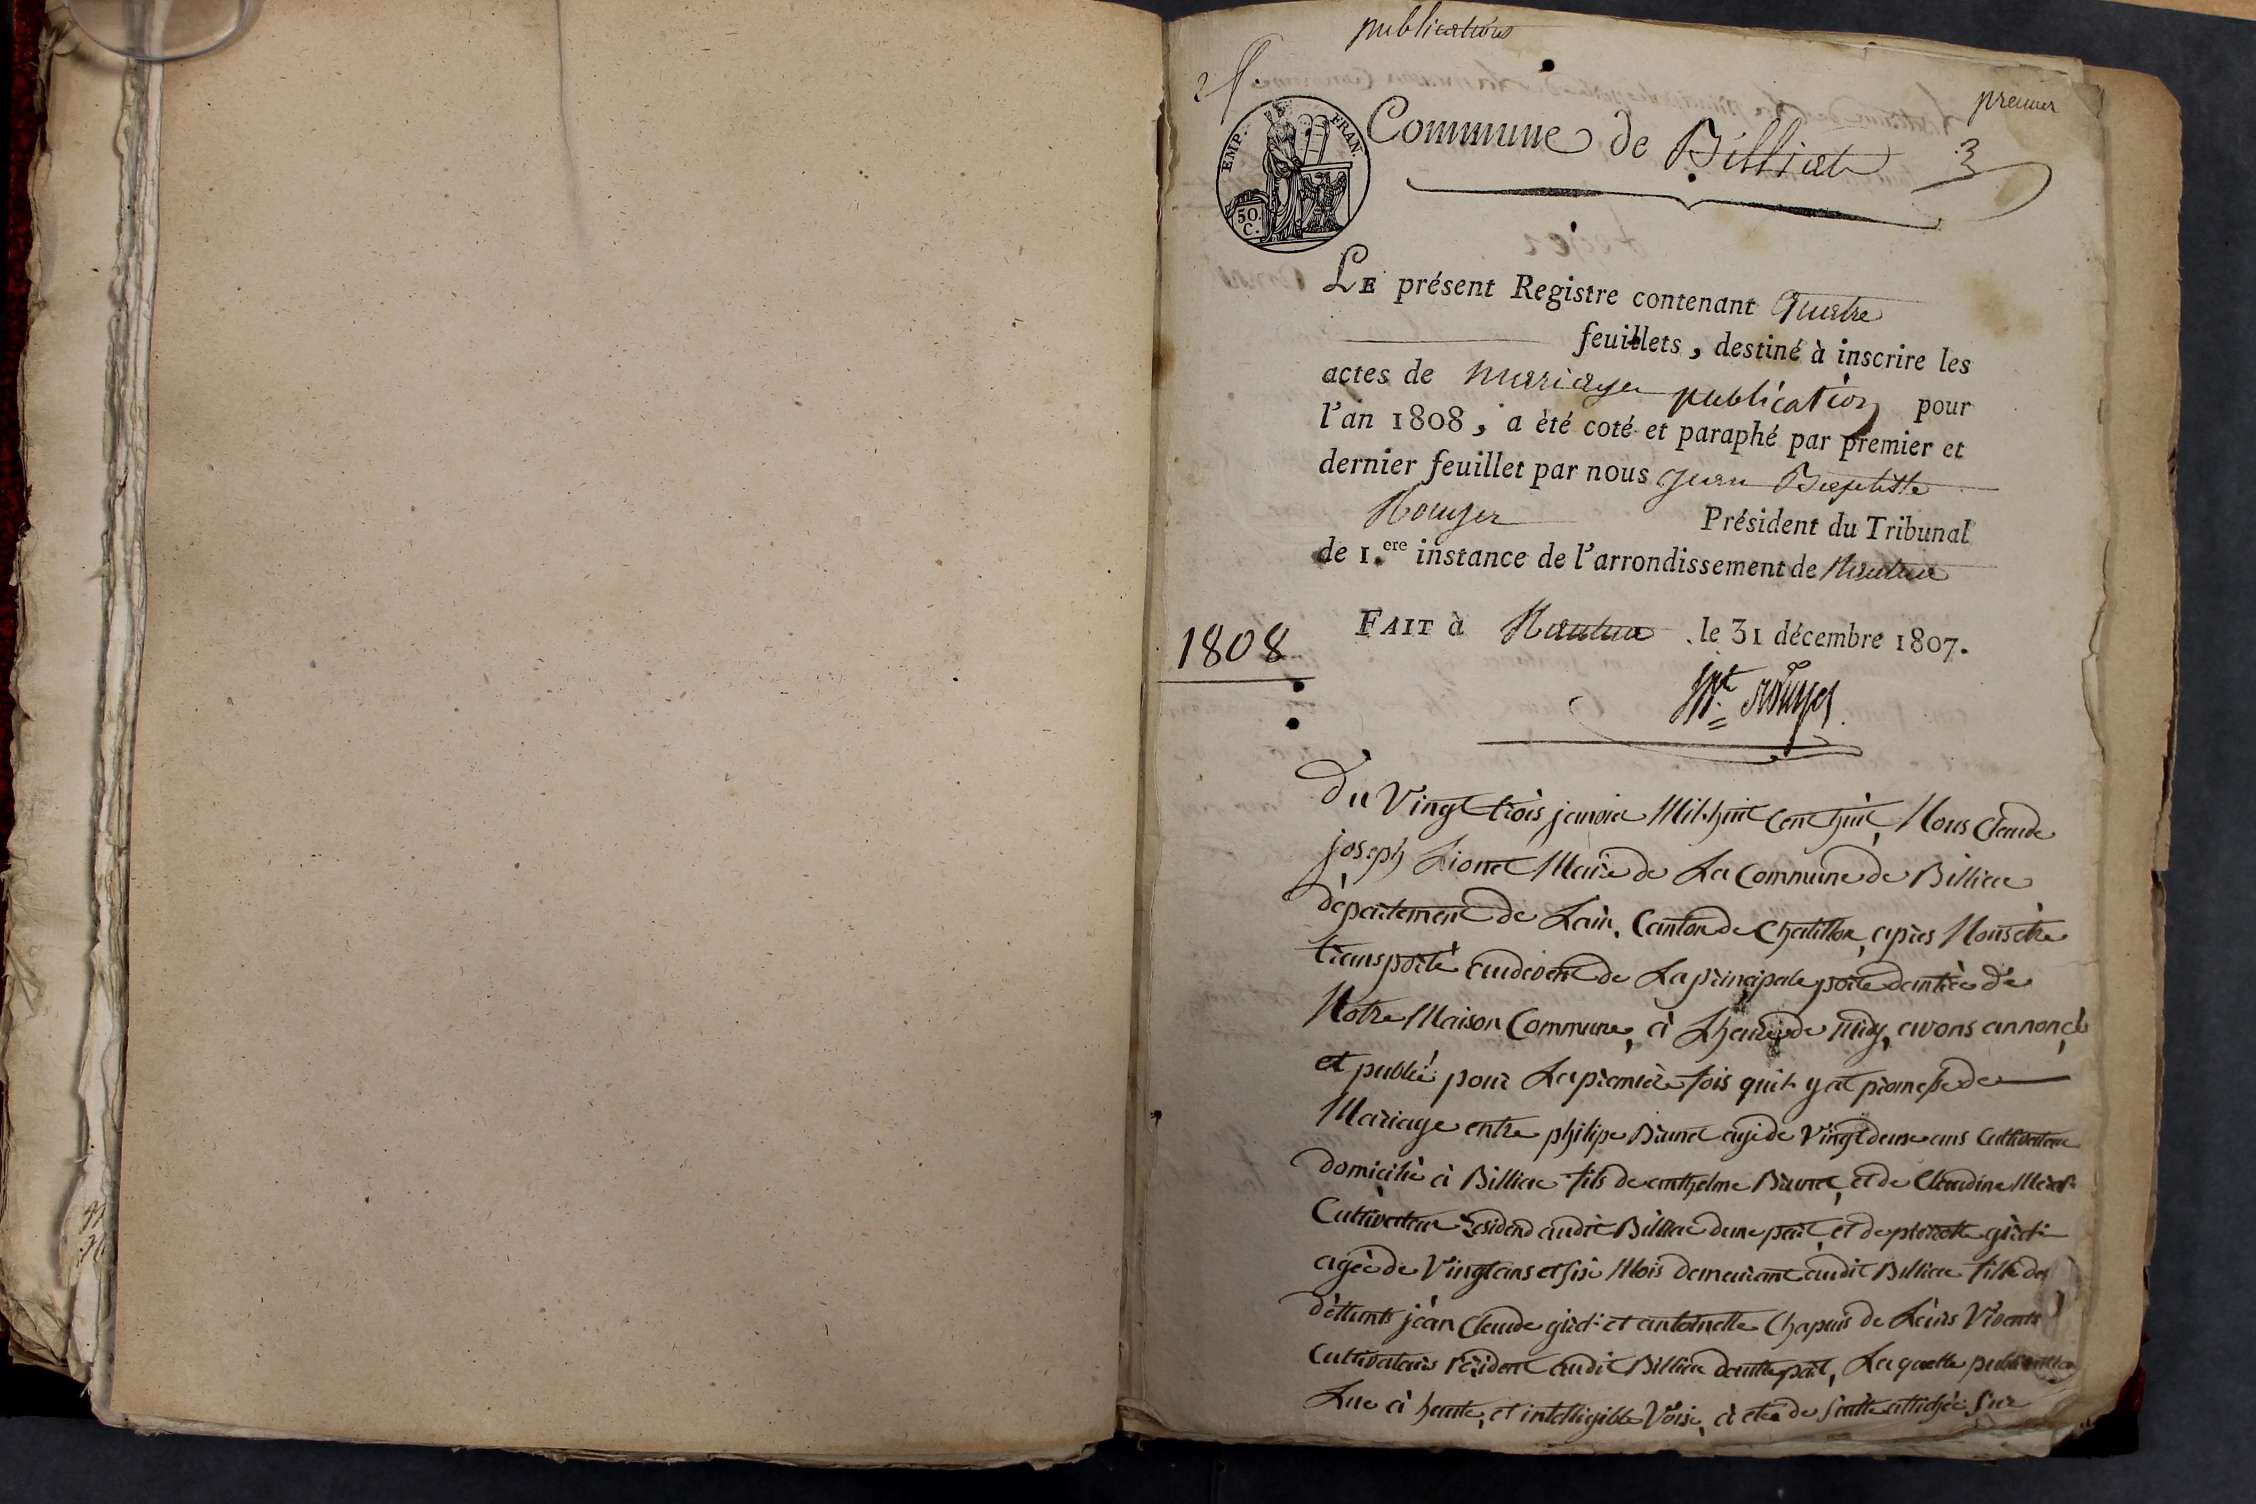 publications
premier
EMP. FRAN.
50. C.
Commune de Billiat
3
LE présent Registre contenant Quatre
feuillets, destiné à inscrire les
actes de mariage publication pour
l'an 1808, a èté coté et paraphé par premier et
dernier feuillet par nous Jean Baptiste
Rouyer Président du Tribunal
de 1.ere instance de l'arrondissement de Nantua
FAIT à Nantua le 31 décembre 1807.
1808
Du Vingt trois janvier Mil huit Cent huit, Nous Claude
joseph Lionet Maire de La Commune de Billiat
département de Lain, Canton de Chatillon, apres Nous être
transporté audevant de La principale porte dentrée de
Notre Maison Commune, à Lheure de midy, avons annoncé
et publié pour La premiere fois quil y at promesse de
Mariage entre philipe Brunet agé de Vingt deux ans Cultivateur
domicilié à Billiat fils de anthelme Brunet, et de Claudine
Cultivateur Résidend audit Billiat dune part, et de pierrette
agée de Vingt ans et six Mois demeurant audit Billiat fille des
défunts jéan Claude et antoinette Chapuis de Leurs Vivants
Cultivateurs résident audit Billiat dautre part, Laquelle publication
Lue à haute, et intelligible Voix, à eté de suitte affichée sur